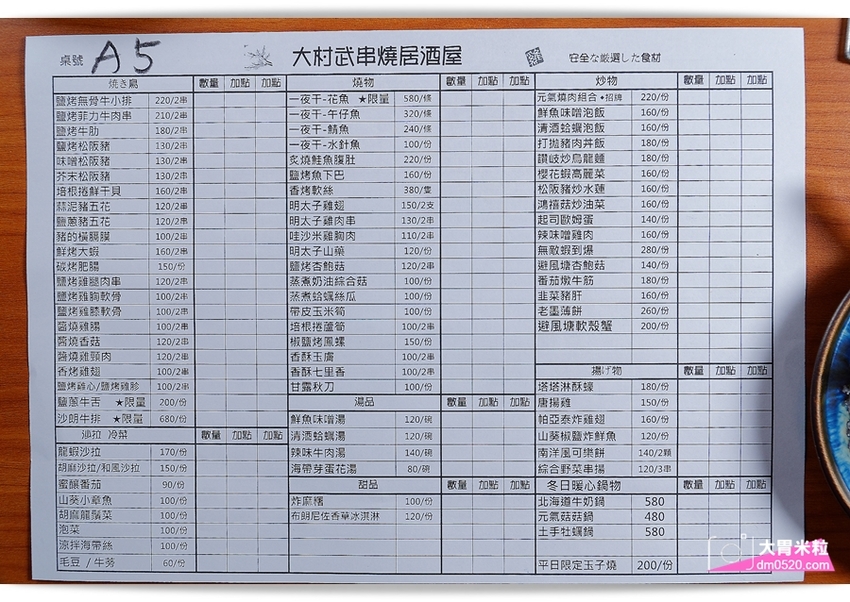 桌號 A5 大村武串燒居酒屋 安全な厳選した食材
焼き鳥 數量 加點 加點
鹽烤無骨牛小排 220/2串
鹽烤菲力牛肉串 210/2串
鹽烤牛肋 180/2串
鹽烤松阪豬 130/2串
味噌松阪豬 130/2串
芥末松阪豬 130/2串
培根捲鮮干貝 160/2串
蒜泥豬五花 120/2串
鹽蔥豬五花 120/2串
豬的橫膈膜 100/2串
鮮烤大蝦 160/2串
碳烤肥腸 150/份
鹽烤雞腿肉串 120/2串
鹽烤雞胸軟骨 100/2串
鹽烤雞膝軟骨 100/2串
醬燒雞腸 100/2串
醬燒香菇 120/2串
醬燒雞頸肉 120/2串
香烤雞翅 100/2串
鹽烤雞心/鹽烤雞胗 100/2串
鹽蔥牛舌 ★限量 200/份
沙朗牛排 ★限量 680/份
沙拉 冷菜 數量 加點 加點
龍蝦沙拉 170/份
胡麻沙拉/和風沙拉 150/份
蜜釀番茄 90/份
山葵小章魚 100/份
胡麻龍鬚菜 100/份
泡菜 100/份
涼拌海帶絲 100/份
毛豆 / 牛蒡 60/份
燒物 數量 加點 加點
一夜干-花魚 ★限量 580/條
一夜干-午仔魚 320/條
一夜干-鯖魚 240/條
一夜干-水針魚 100/份
炙燒鮭魚腹肚 220/份
鹽烤魚下巴 160/份
香烤軟絲 380/隻
明太子雞翅 150/2支
明太子雞肉串 130/2串
哇沙米雞胸肉 110/2串
明太子山藥 120/份
鹽烤杏鮑菇 120/2串
蒸煮奶油綜合菇 100/份
蒸煮蛤蠣絲瓜 100/份
帶皮玉米筍 100/份
培根捲蘆筍 100/2串
椒鹽烤鳳螺 150/份
香酥玉膚 100/2串
香酥七里香 100/2串
甘露秋刀 100/份
湯品 數量 加點 加點
鮮魚味噌湯 120/碗
清酒蛤蠣湯 120/碗
辣味牛肉湯 140/碗
海帶芽蛋花湯 80/碗
甜品 數量 加點 加點
炸麻糬 100/份
布朗尼佐香草冰淇淋 120/份
炒物 數量 加點 加點
元氣燒肉組合•招牌 220/份
鮮魚味噌泡飯 160/份
清酒蛤蠣泡飯 160/份
打拋豬肉丼飯 180/份
讚岐炒烏龍麵 180/份
櫻花蝦高麗菜 160/份
松阪豬炒水蓮 160/份
鴻禧菇炒油菜 160/份
起司歐姆蛋 140/份
辣味噌雞肉 160/份
無敵蝦到爆 280/份
避風塘杏鮑菇 140/份
番茄燉牛筋 180/份
韭菜豬肝 160/份
老墨薄餅 260/份
避風塘軟殼蟹 200/份
揚げ物 數量 加點 加點
塔塔淋酥蠔 180/份
唐揚雞 150/份
帕亞泰炸雞翅 160/份
山葵椒鹽炸鮮魚 120/份
南洋風可樂餅 140/2顆
綜合野菜串揚 120/3串
冬日暖心鍋物 數量 加點 加點
北海道牛奶鍋 580
元氣菇菇鍋 480
土手牡蠣鍋 580
平日限定玉子燒 200/份
大胃米粒
dm0520.com